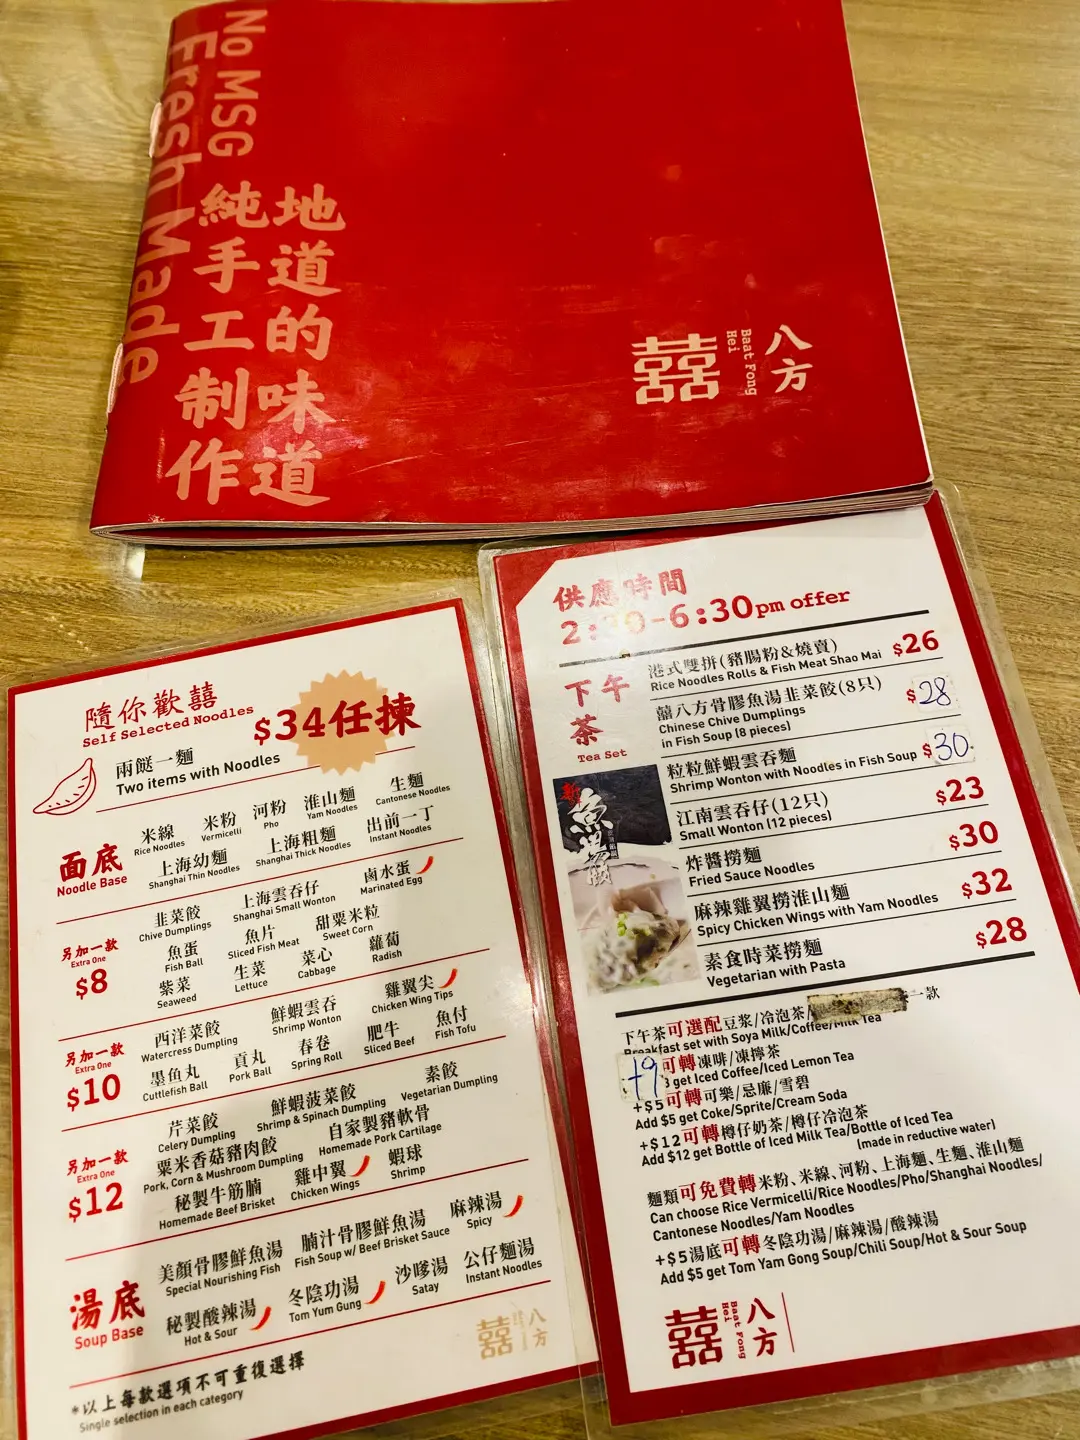 No MSG
Fresh Made
地道的味道
純手工制作
囍
八方
Baat Fong
Hei
隨你歡囍
Self Selected Noodles
$34任揀
兩餸一麵
Two items with Noodles
面底
Noodle Base
米線 米粉 河粉 淮山麵 生麵
Rice Noodles Vermicelli Pho Yam Noodles Cantonese Noodles
上海幼麵 上海粗麵 出前一丁
Shanghai Thin Noodles Shanghai Thick Noodles Instant Noodles
另加一款
Extra One
$8
韭菜餃 上海雲吞仔 鹵水蛋
Chive Dumplings Shanghai Small Wonton Marinated Egg
魚蛋 魚片 甜粟米粒
Fish Ball Sliced Fish Meat Sweet Corn
紫菜 生菜 菜心 蘿蔔
Seaweed Lettuce Cabbage Radish
另加一款
Extra One
$10
西洋菜餃 鮮蝦雲吞 雞翼尖
Watercress Dumpling Shrimp Wonton Chicken Wing Tips
墨魚丸 貢丸 春卷 肥牛 魚付
Cuttlefish Ball Pork Ball Spring Roll Sliced Beef Fish Tofu
另加一款
Extra One
$12
芹菜餃 鮮蝦菠菜餃 素餃
Celery Dumpling Shrimp & Spinach Dumpling Vegetarian Dumpling
粟米香菇豬肉餃 自家製豬軟骨
Pork, Corn & Mushroom Dumpling Homemade Pork Cartilage
秘製牛筋腩 雞中翼 蝦球
Homemade Beef Brisket Chicken Wings Shrimp
湯底
Soup Base
美顏骨膠鮮魚湯 腩汁骨膠鮮魚湯 麻辣湯
Special Nourishing Fish Fish Soup w/ Beef Brisket Sauce Spicy
秘製酸辣湯 冬陰功湯 沙嗲湯 公仔麵湯
Hot & Sour Tom Yum Gung Satay Instant Noodles
*以上每款選項不可重復選擇
Single selection in each category
囍 八方
供應時間
6:30pm offer
下午茶
Tea Set
港式雙拼(豬腸粉&燒賣)
Rice Noodles Rolls & Fish Meat Shao Mai $26
囍八方骨膠魚湯韭菜餃(8只)
Chinese Chive Dumplings
in Fish Soup (8 pieces) $28
粒粒鮮蝦雲吞麵
Shrimp Wonton with Noodles in Fish Soup $30
江南雲吞仔(12只)
Small Wonton (12 pieces) $23
炸醬撈麵
Fried Sauce Noodles $30
麻辣雞翼撈淮山麵
Spicy Chicken Wings with Yam Noodles $32
素食時菜撈麵
Vegetarian with Pasta $28
下午茶可選配豆漿/冷泡茶/ 一款
Breakfast set with Soya Milk/Coffee/Milk Tea
+9可轉凍啡/凍檸茶
get Iced Coffee/Iced Lemon Tea
+$5可轉可樂/忌廉/雪碧
Add $5 get Coke/Sprite/Cream Soda
+$12可轉樽仔奶茶/樽仔冷泡茶
Add $12 get Bottle of Iced Milk Tea/Bottle of Iced Tea
(made in reductive water)
麵類可免費轉米粉、米線、河粉、上海麵、生麵、淮山麵
Can choose Rice Vermicelli/Rice Noodles/Pho/Shanghai Noodles/
Cantonese Noodles/Yam Noodles
+$5湯底可轉冬陰功湯/麻辣湯/酸辣湯
Add $5 get Tom Yam Gong Soup/Chili Soup/Hot & Sour Soup
囍
八方
Baat Fong
Hei